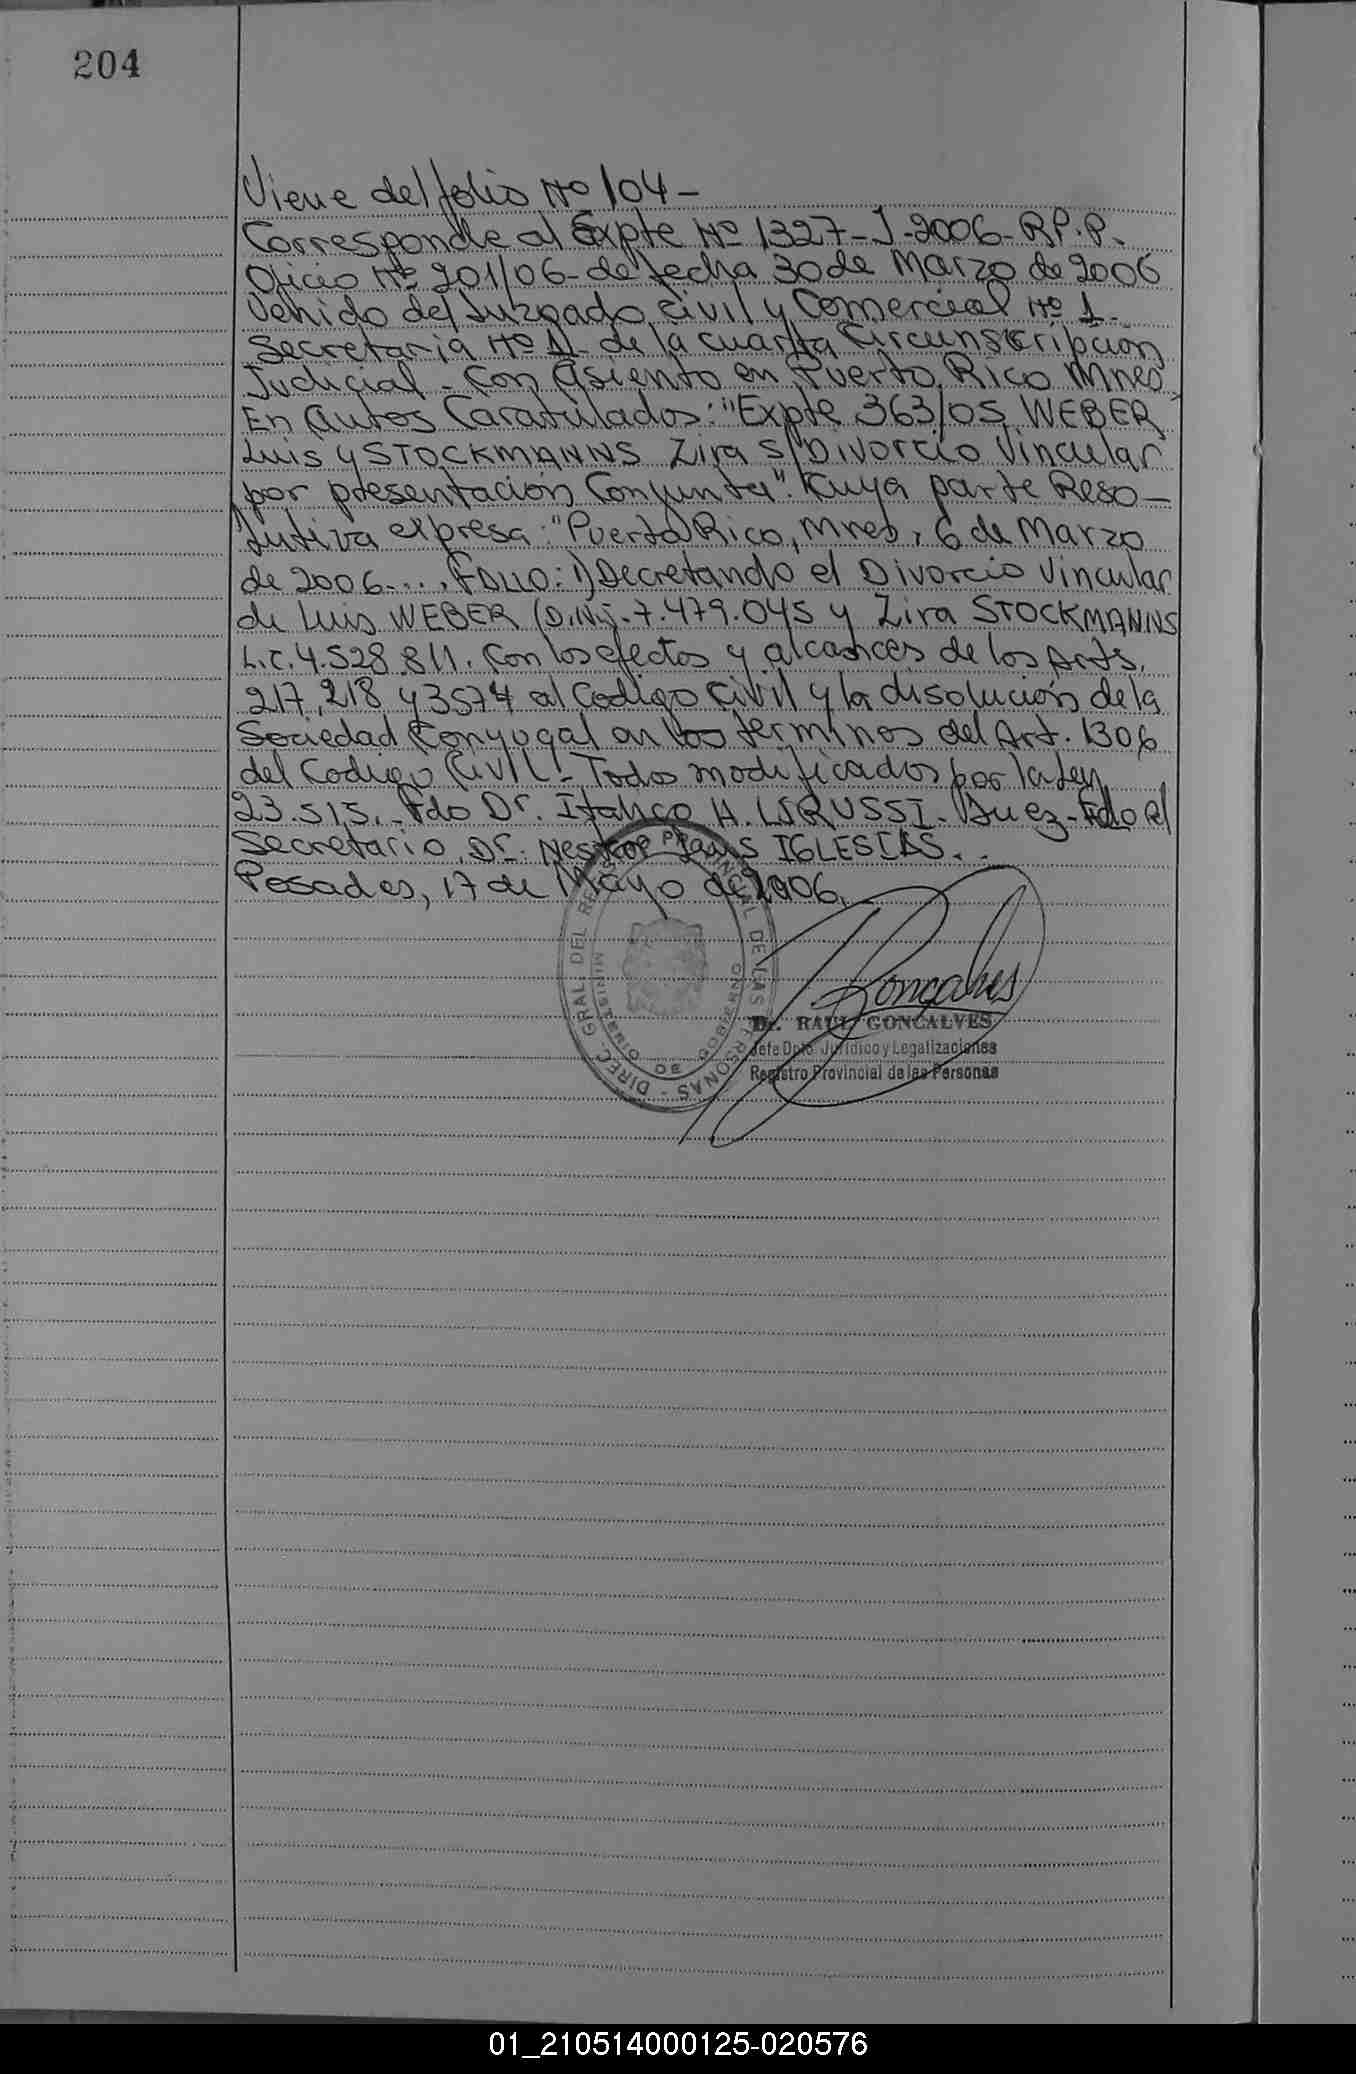 204
Viene del folio Nº 104 -
Corresponde al Expte Nº 1327-J-2006-R.P.P.
Oficio Nº 201/06- de fecha 30 de Marzo de 2006
Venido del Juzgado Civil y Comercial Nº 1.
Secretaria Nº 1- de la cuarta Circunscripcion
Judicial - Con Asiento en Puerto Rico Mnes
En Autos Caratulados: "Expte 363/05 WEBER
Luis y STOCKMANNS Zira s/Divorcio Vincular
por presentación Conjunta". Cuya parte Reso-
lutiva expresa: "Puerto Rico, Mnes, 6 de Marzo
de 2006...., FALLO: 1) Decretando el Divorcio Vincular
de Luis WEBER (D.N.I.-7.479.045 y Zira STOCKMANNS
L.C. 4.528.811. Con los efectos y alcances de los Arts.
217, 218 y 3574 al Codigo Civil y la disolución de la
Sociedad Conyugal en los terminos del Art. 1306
del Codigo Civil!- Todos modificados por la Ley
23.515.- Fdo Dr. Italico H. LARUSSI. Juez- Fdo el
Secretario, Dr. Nestor IGLESIAS..
Posadas, 17 de Mayo de 2006.
DIREC. GRAL. DEL REGIS. PROVINCIAL DE LAS PERSONAS -
MINISTERIO DE GOBIERNO
Goncalves
Dr. RAUL GONCALVES
Jefe Dpto Jurídico y Legalizaciones
Registro Provincial de las Personas
01_210514000125-020576